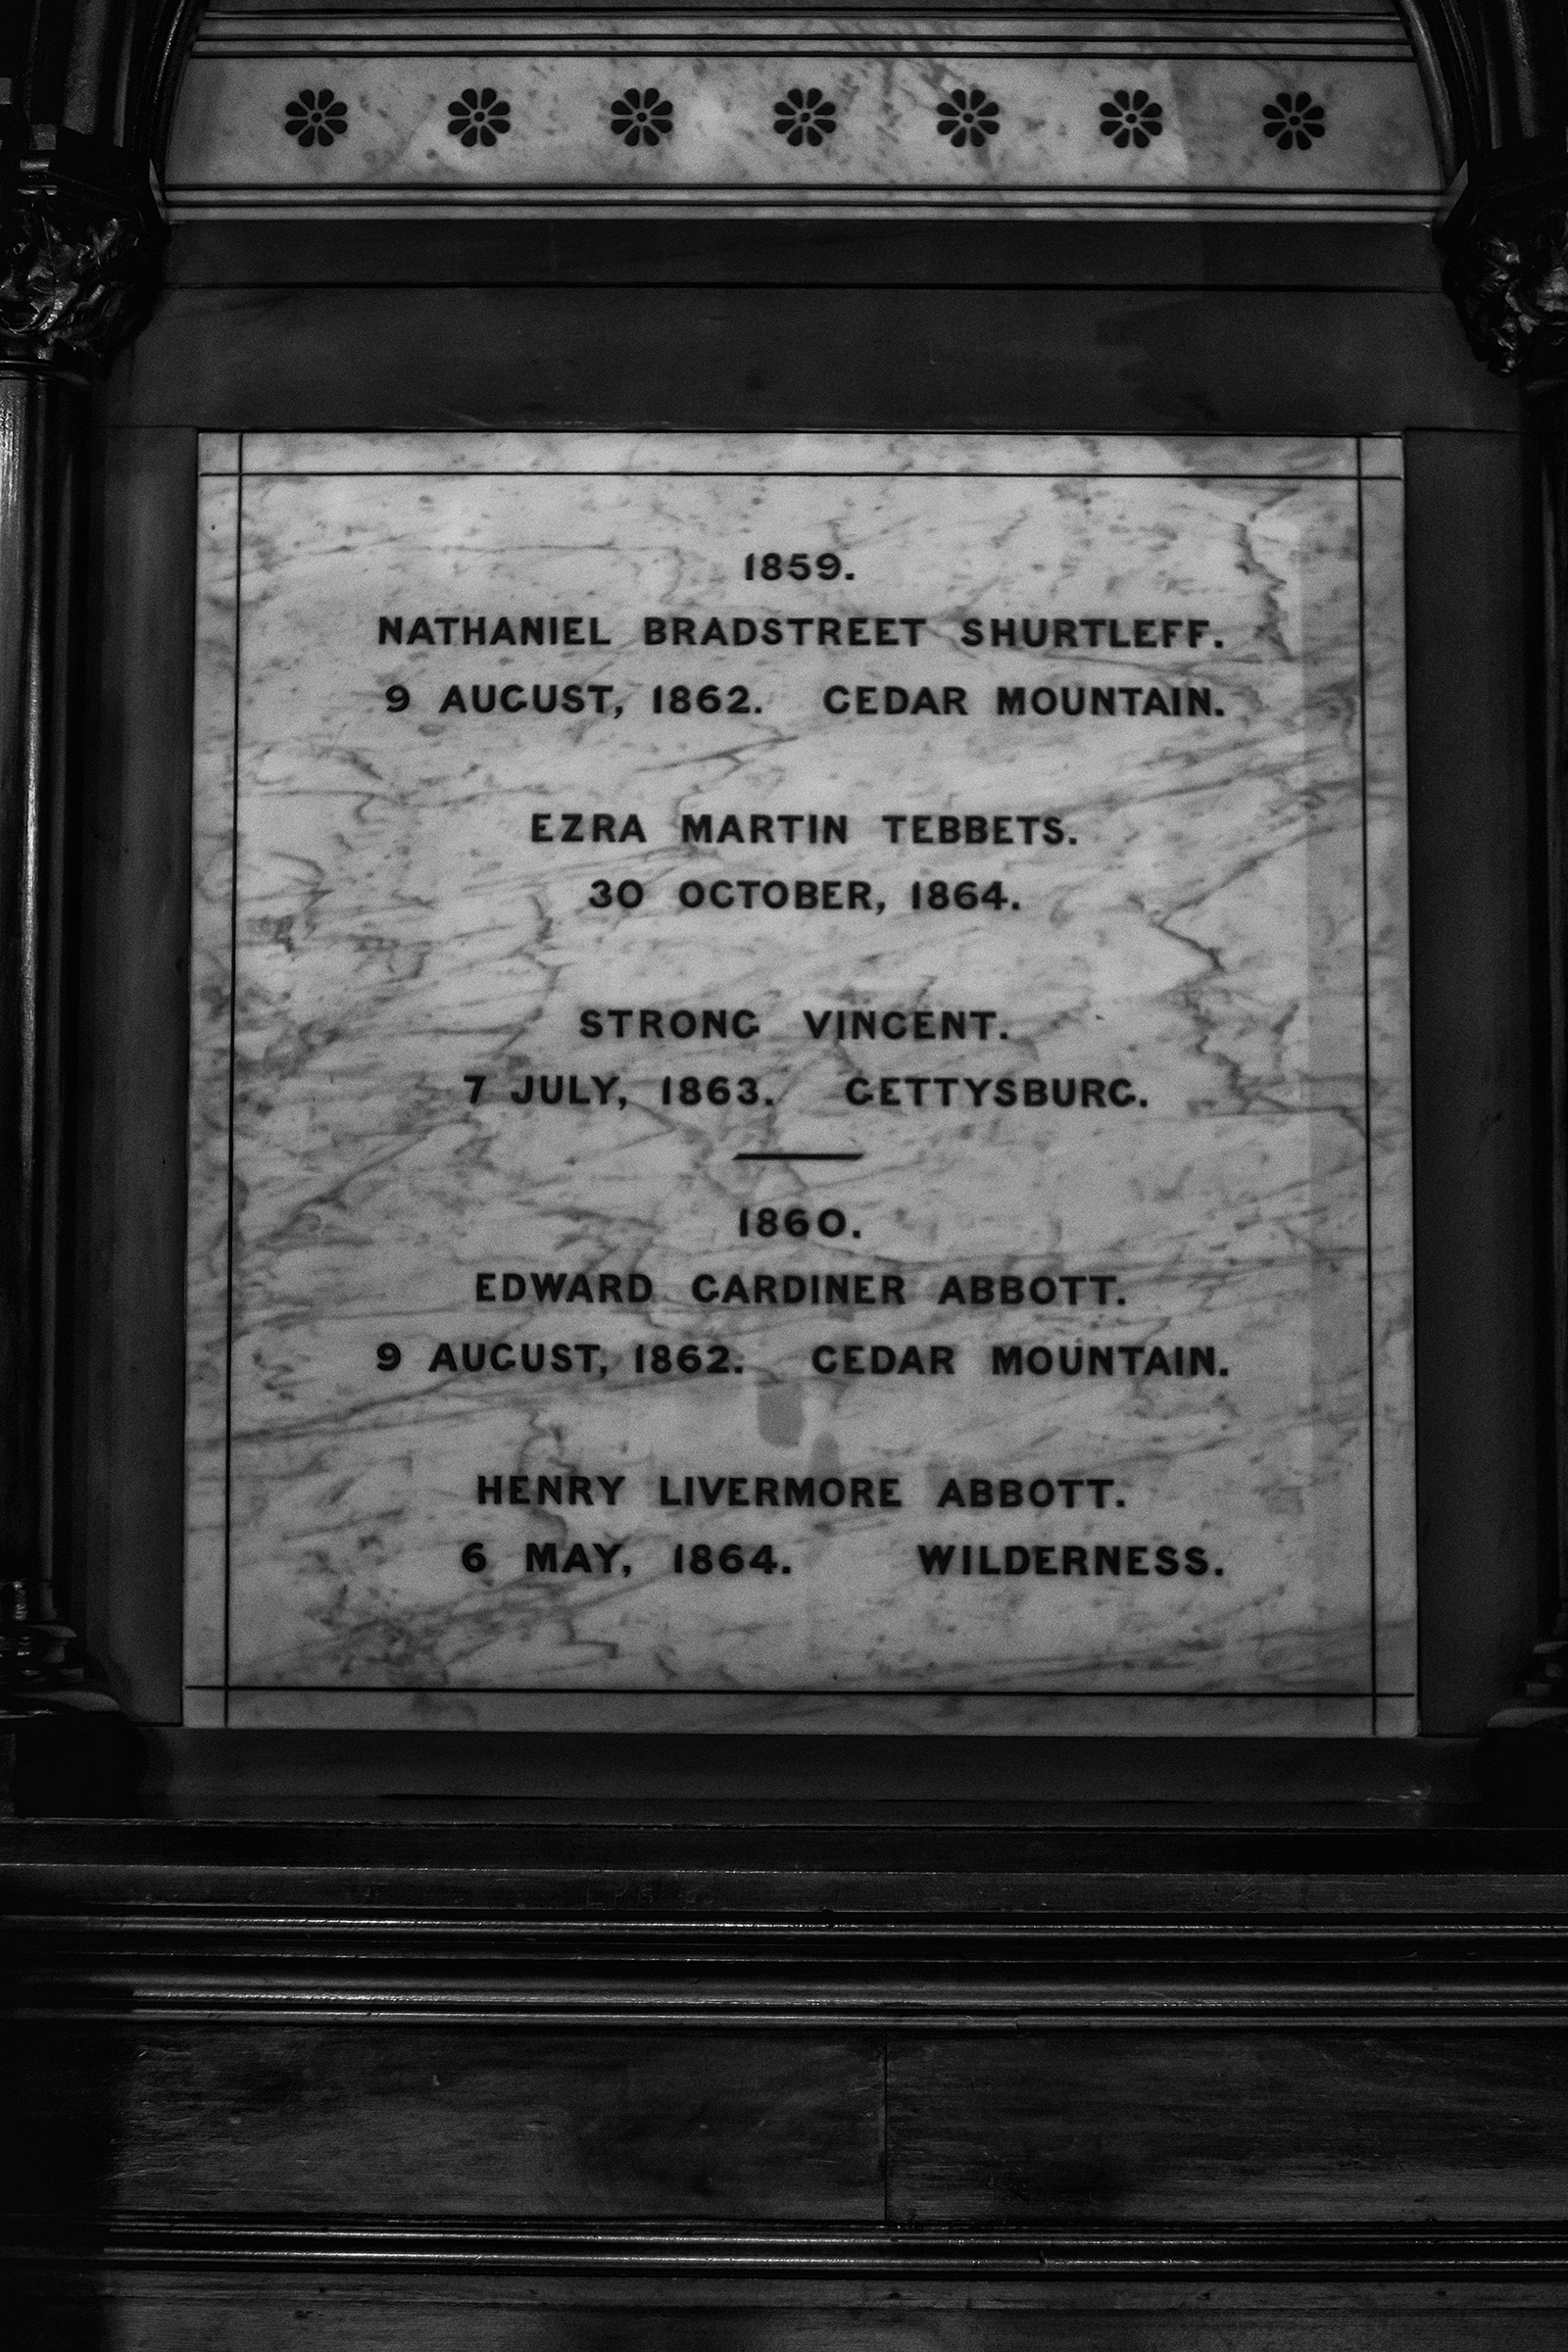 1859.
NATHANIEL BRADSTREET SHURTLEFF.
9 AUGUST, 1862. CEDAR MOUNTAIN.
EZRA MARTIN TEBBETS.
30 OCTOBER, 1864.
STRONG VINCENT.
7 JULY, 1863. GETTYSBURG.
1860.
EDWARD GARDINER ABBOTT.
9 AUGUST, 1862. CEDAR MOUNTAIN.
HENRY LIVERMORE ABBOTT.
6 MAY, 1864. WILDERNESS.